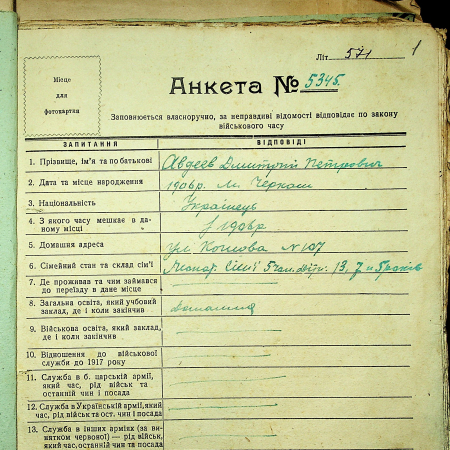 Літ 571
1
Місце
для
фотокартки
Анкета № 5345.
Заповнюється власноручно, за неправдиві відомості відповідає по закону
військового часу
ЗАПИТАННЯ ВІДПОВІДІ
1. Прізвище, ім'я та по батькові Авдеев Дмитрий Петрович
2. Дата та місце народження 1906р. м. Черкаси
3. Національність Українець
4. З якого часу мешкає в да-
ному місці з 1906р.
5. Домашня адреса Ул. №107
6. Сімейний стан та склад сім'ї Женат. Сімї 5 чол. діти: 13, 7 и 5 років
7. Де проживав та чим займався
до переїзду в дане місце
8. Загальна освіта, який учбовий
заклад, де і коли закінчив домашня
9. Військова освіта, який заклад,
де і коли закінчив
10. Відношення до військової
служби до 1917 року
11. Служба в б. царській армії,
який час, рід військ та
останній чин і посада
12. Служба в Українській армії, який
час, рід військ та ост. чин і посада
13. Служба в інших арміях (за ви-
нятком червоної) — рід військ,
який час, останній чин та посада